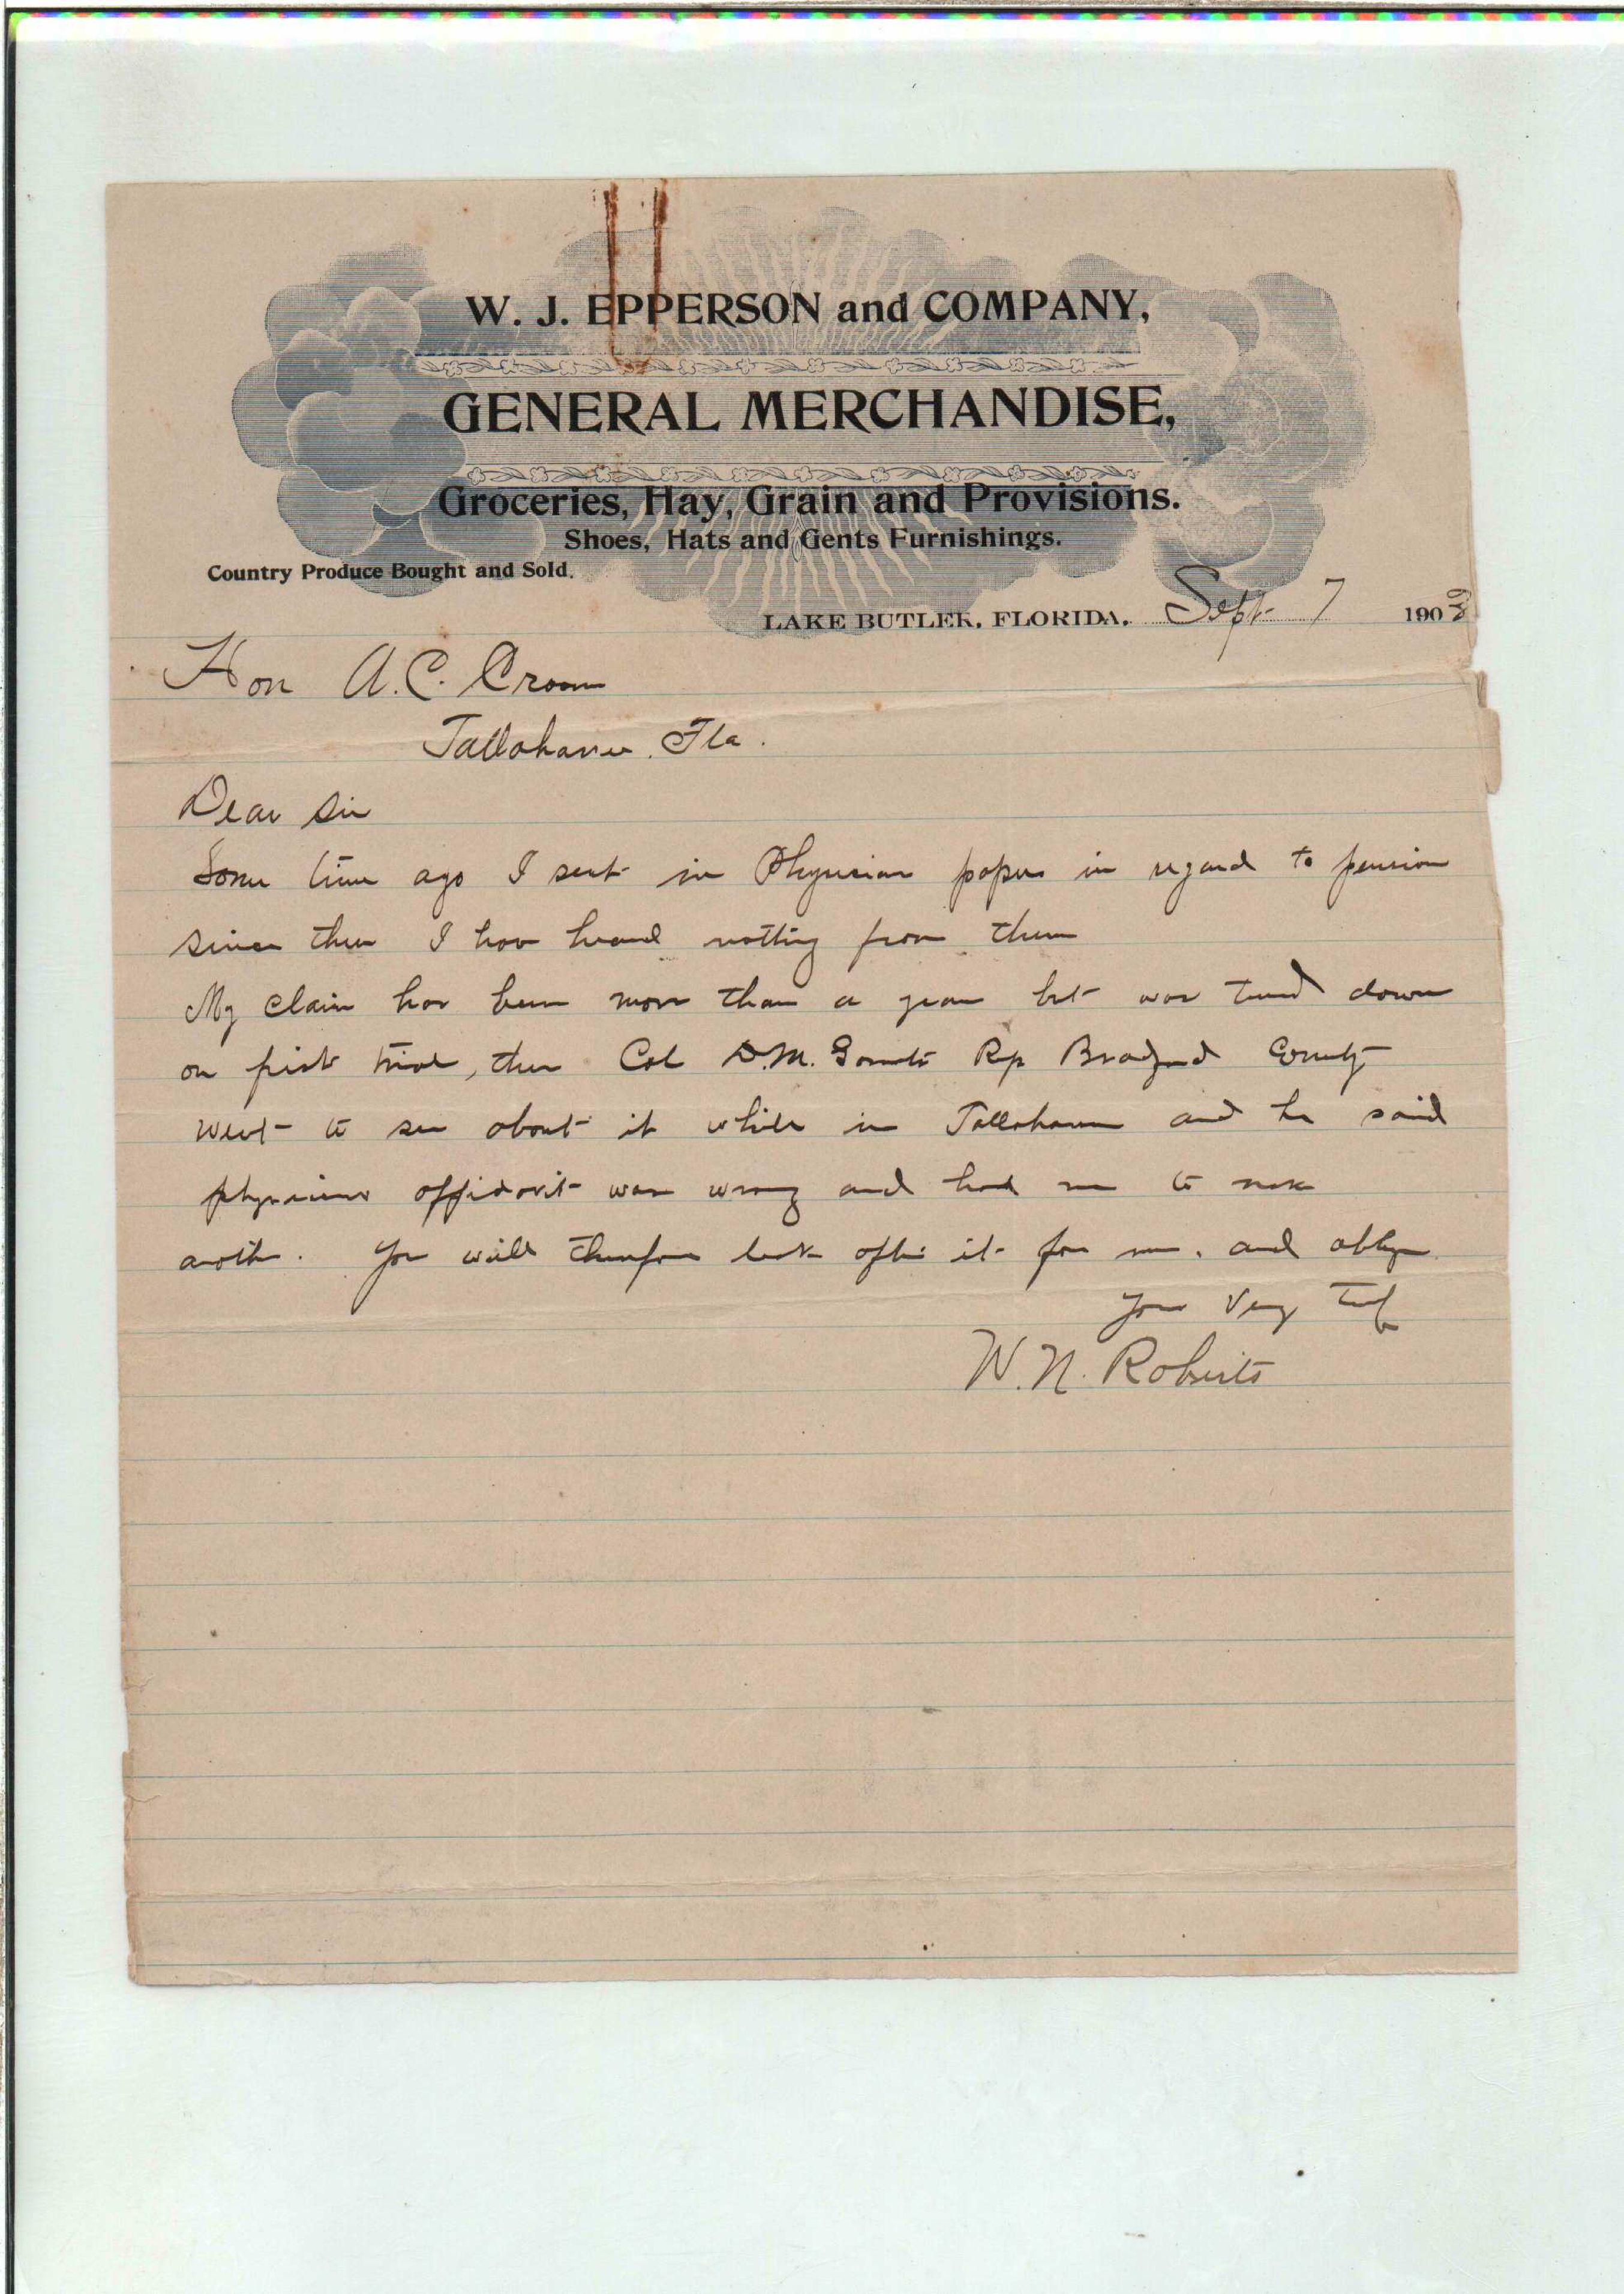 W. J. EPPERSON and COMPANY,
GENERAL MERCHANDISE,
Groceries, Hay, Grain and Provisions.
Shoes, Hats and Gents Furnishings.
Country Produce Bought and Sold.
LAKE BUTLER, FLORIDA. Sept 7 190
Hon A.C. Croom
Tallahassee. Fla.
Dear Sir
Some time ago I sent in Physician papers in regard to pension
since then I hav heard nothing from them
My claim has been more than a year but was turned down
on first trial, then Col D.M. Rep Bradford County
went to see about it while in Tallahassee and he said
physicians affidavit was wrong and had me to make
another. You will therefore look after it for me. and oblige
Your Very Truly
W.N. Roberts